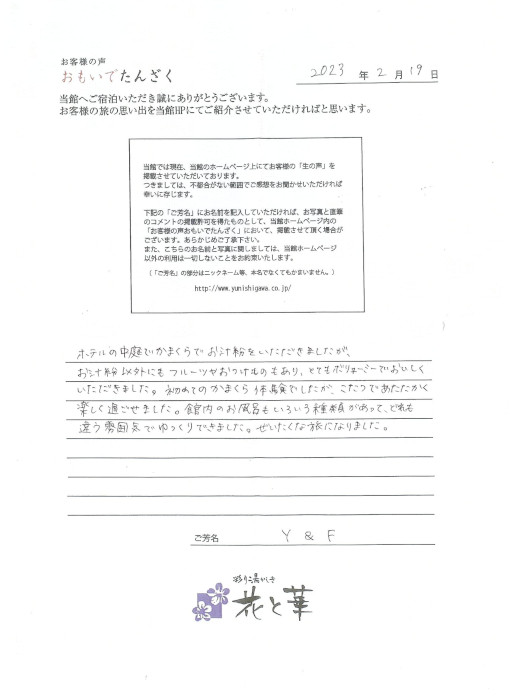 お客様の声
おもいでたんざく
2023 年 2 月 19 日
当館へご宿泊いただき誠にありがとうございます。
お客様の旅の思い出を当館HPにてご紹介させていただければと思います。
当館では現在、当館のホームページ上にてお客様の「生の声」を
掲載させていただいております。
つきましては、不都合がない範囲でご感想をお聞かせいただければ
幸いに存じます。
下記の「ご芳名」にお名前を記入していただければ、お写真と直筆
のコメントの掲載許可を得たものとして、当館ホームページ内の
「お客様の声おもいでたんざく」において、掲載させて頂く場合が
ございます。あらかじめご了承下さい。
また、こちらのお名前と写真に関しましては、当館ホームページ
以外の利用は一切しないことをお約束いたします。
(「ご芳名」の部分はニックネーム等、本名でなくてもかまいません。)
http://www.yunishigawa.co.jp/
ホテルの中庭でかまくらでお汁粉をいただきましたが、
お汁粉以外にもフルーツやおつけものもあり、とてもボリューミーでおいしく
いただきました。初めてのかまくら体験でしたが、こたつであたたかく
楽しく過ごせました。館内のお風呂もいろいろ種類があって、どれも
違う雰囲気でゆっくりできました。ぜいたくな旅になりました。
ご芳名 Y & F
彩り湯かしき
花と華